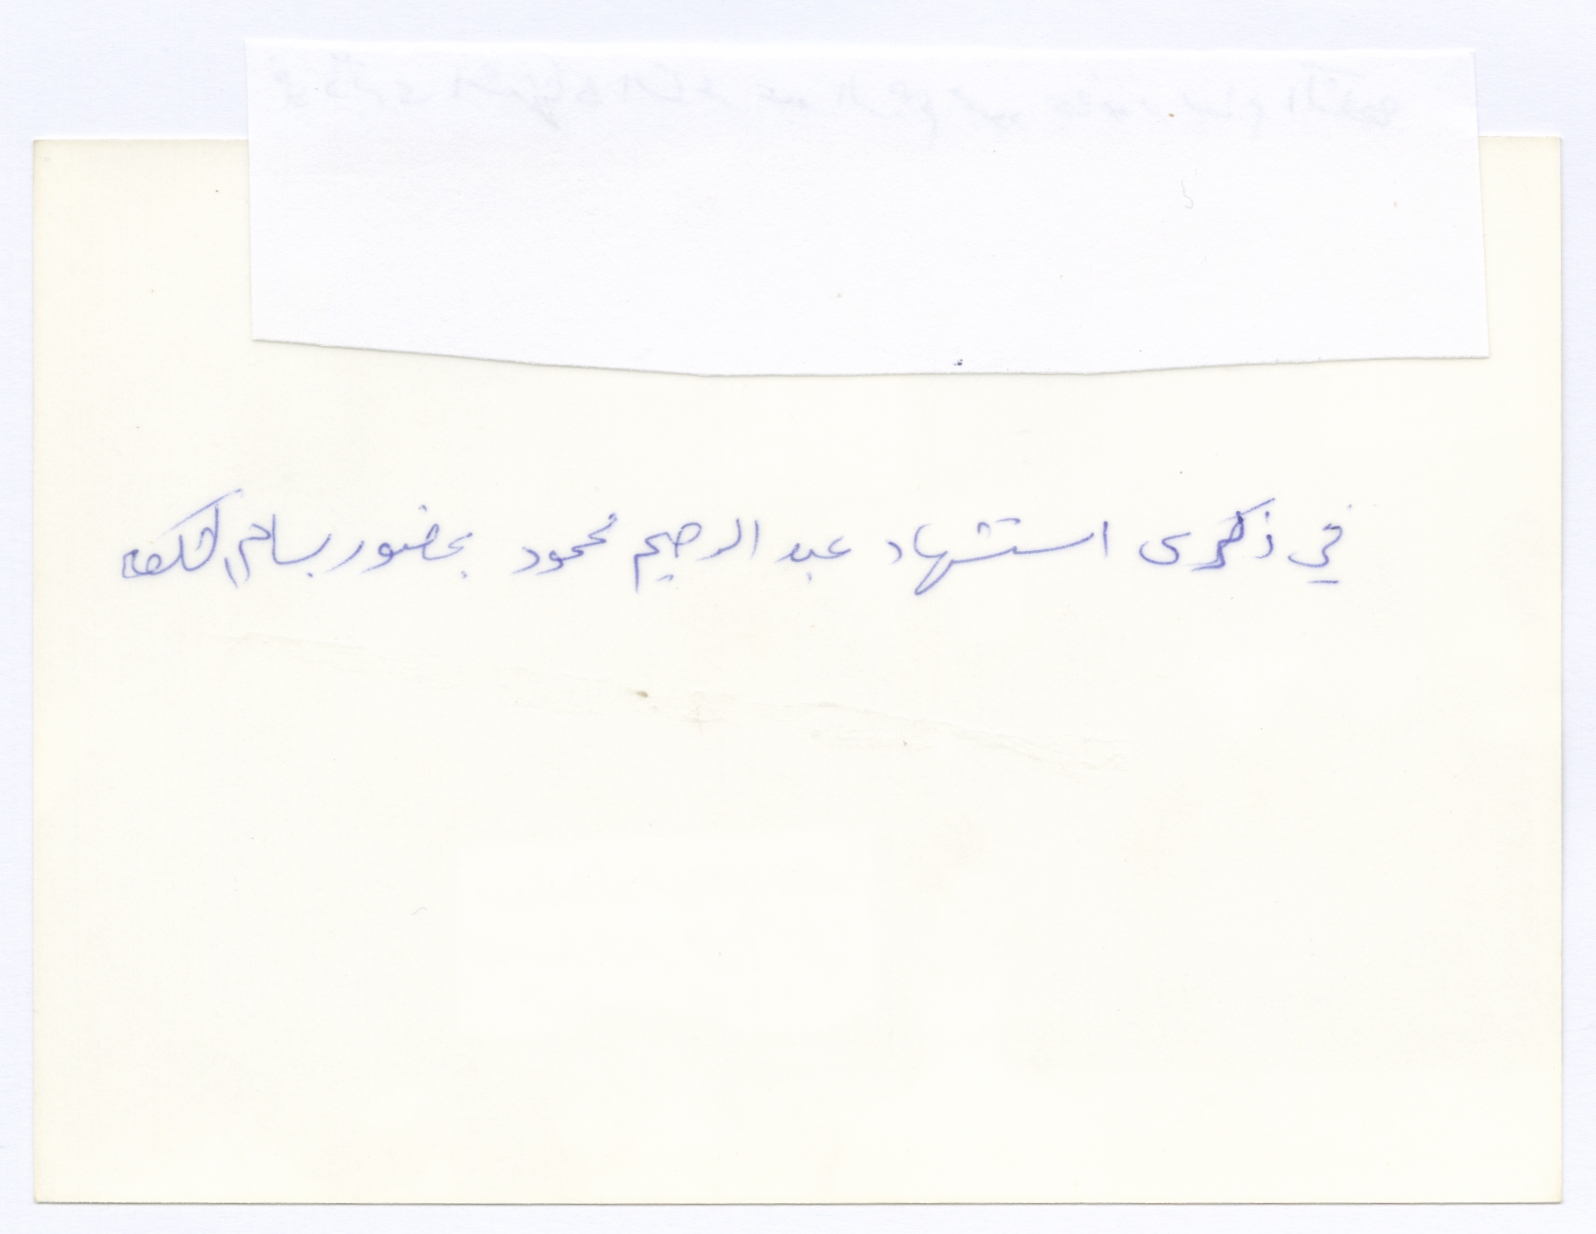 في ذكرى استشهاد عبد الرحيم محمود بحضور بسام الشكعه